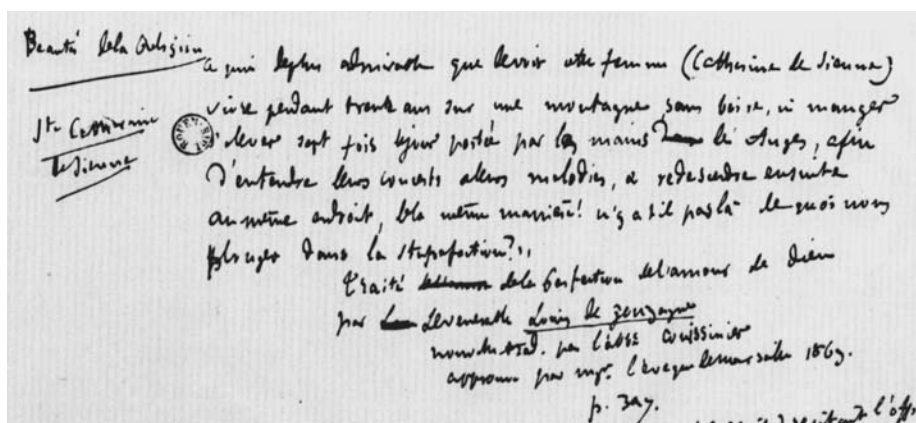 Beauté de la Religion
Ste Catherine
de Sienne
a qui de plus admirable que de voir cette femme (Catherine de Sienne)
vivre pendant trente ans sur une montagne sans boire, ni manger
s'élever sept fois le jour portée par les mains des Anges, afin
d'entendre leurs concerts & leurs mélodies, & redescendre ensuite
au même endroit, de la même manière! n'y a-t-il pas là de quoi nous
plonger dans la stupéfaction?"
Traité de la Perfection de l'amour de Dieu
par Le vénérable Louis de
trad. par l'abbé
approuvé par mgr. l'évêque de Marseille 1869.
p.
l'off